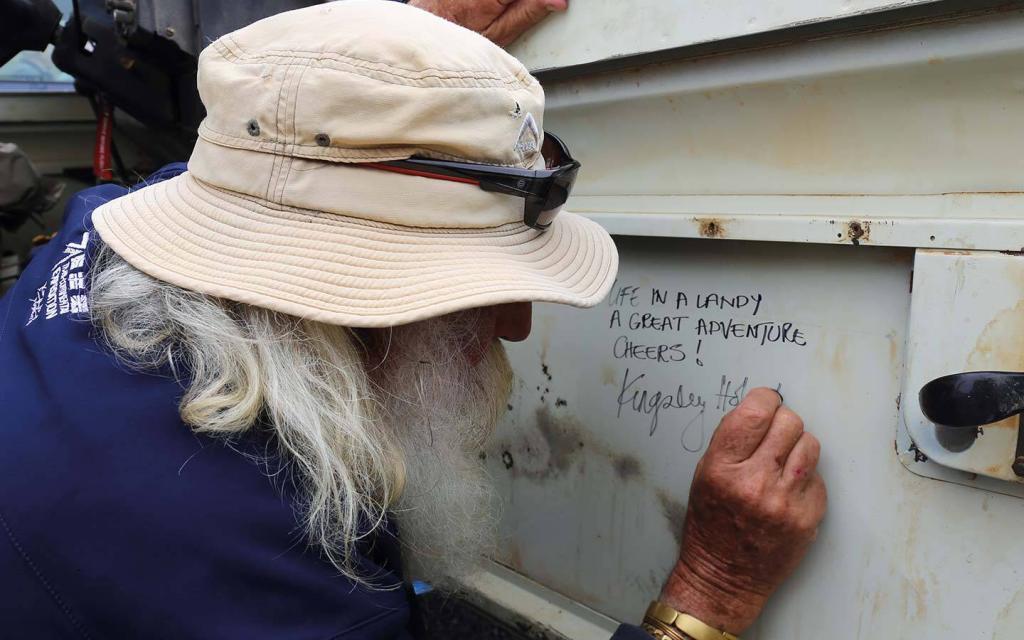 LIFE IN A LANDY
A GREAT ADVENTURE
CHEERS!
Kingsley
EXPEDITION